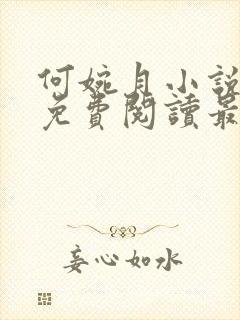 何婉月小說
免費閱讀最
妾心如水